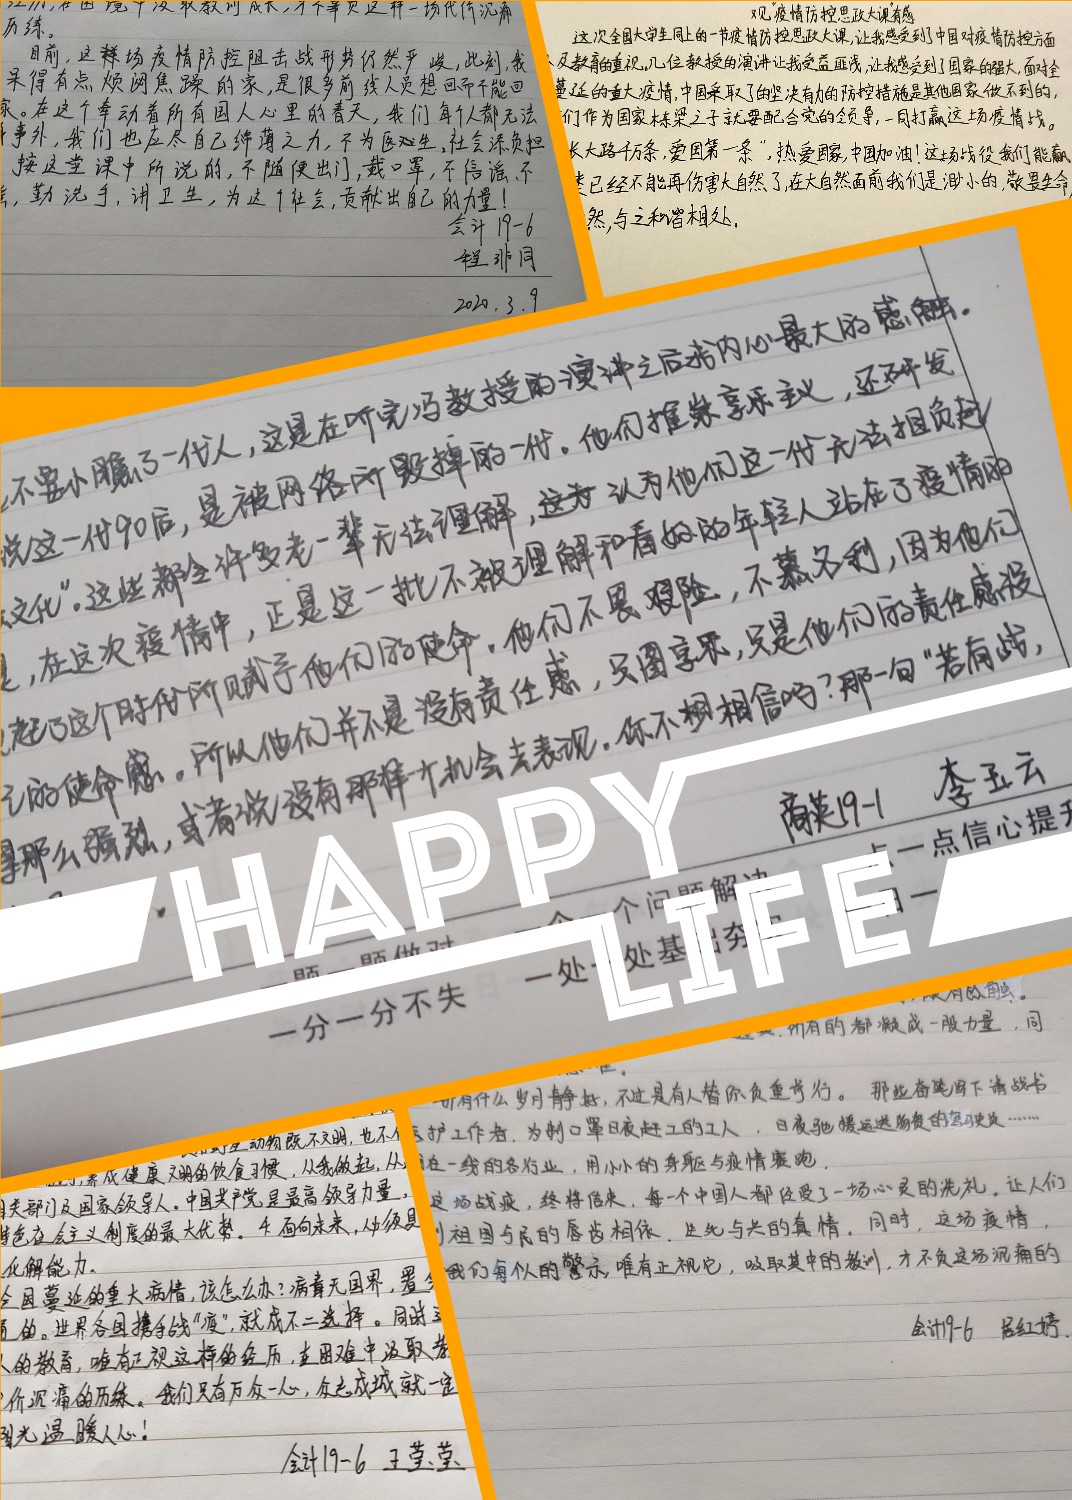 历练。
目前，这样一场疫情防控阻击战形势仍然严峻，此刻，我
呆得有点烦闷焦躁的家，是很多前线人员想回而不能回
家。在这个牵动着所有国人心里的春天，我们每个人都无法
事外，我们也应尽自己绵薄之力，不为医必生，社会添负担
按这堂课中所说的，不随便出门，戴口罩，不信谣、不
，勤洗手，讲卫生，为这个社会，贡献出自己的力量！
会计19-6
程非同
2020.3.9
观"疫情防控思政大课"有感
这次全国大学生同上的一节疫情防控思政大课，让我感受到了中国对疫情防控方面
及教育的重视。几位教授的演讲让我受益匪浅，让我感受到了国家的强大，面对全
蔓延的重大疫情，中国采取了的坚决有力的防控措施是其他国家做不到的，
们作为国家栋梁之子就要配合党的领导，一同打赢这场疫情战。
长大路千万条，爱国第一条"，热爱国家，中国加油！这场战役我们能赢
类已经不能再伤害大自然了，在大自然面前我们是渺小的，敬畏生命，
然，与之和谐相处。
不要小瞧了一代人，这是在听完冯教授的演讲之后我内心最大的感触。
说这一代90后，是被网络所毁掉的一代。他们推崇享乐主义，还研发
文化"。这些都令许多老一辈无法理解，认为他们这一代无法担负起
是，在这次疫情中，正是这一批不被理解和看好的年轻人站在了疫情的
起了这个时代所赋予他们的使命。他们不畏艰险，不慕名利，因为他们
的使命感。所以他们并不是没有责任感，只图享乐，只是他们的责任感没
那么强烈，或者说没有那样个机会去表现。你不相信吗？那一句"若有战，
商英19-1 李玉云
一题一题做对 一个一个问题解决 一点一点信心提升
一分一分不失 一处一处基础夯实 一日一
HAPPY
LIFE
所有的都凝成一股力量，同
有什么岁月静好，不过是有人替你负重前行。那些奋笔写下请战书
医护工作者，为制口罩日夜赶工的工人，日夜驰援运送物资的驾驶员……
在一线的各行业，用小小的身躯与疫情赛跑。
这场战疫，终将结束，每一个中国人都经受了一场心灵的洗礼。让人们
到祖国与民的唇齿相依、生死与共的真情。同时，这场疫情，
我们每似的警示，唯有正视它，吸取其中的教训，才不负这场沉痛的
会计19-6 吕红婷
动物既不文明，也不
养成健康文明的饮食习惯，从我做起，从
相关部门及国家领导人。中国共产党是最高领导力量，
特色在会主义制度的最大优势。4.面向未来，必须具
化解能力。
全国蔓延的重大病情，该怎么办？病毒无国界，置
的。世界各国携手战"疫"，就成不二选择。同时
人的教育，唯有正视这样的经历，在困难中汲取教
代价沉痛的历练。我们只有万众一心，众志成城就一定
光温暖人心！
会计19-6 王莹莹